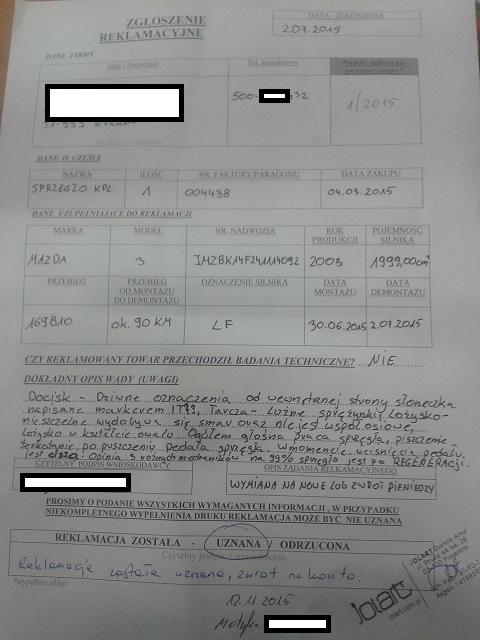 ZGŁOSZENIE
REKLAMACYJNE
DATA ZGŁOSZENIA
2.07.2015
DANE FIRMY
Imię i Nazwisko
Tel. kontaktowy
Numer zgłoszenia
gwarancyjnego
500- 132
1/2015
DANE O CZĘŚCI
NAZWA ILOŚĆ NR. FAKTURY PARAGONU DATA ZAKUPU
SPRZĘGŁO KPL. 1 004438 04.03.2015
DANE UZUPEŁNIAJĄCE DO REKLAMACJI
MARKA MODEL NR. NADWOZIA ROK PRODUKCJI POJEMNOŚĆ SILNIKA
MAZDA 3 JMZBK14F241114092 2003 1999,00cm³
PRZEBIEG PRZEBIEG OD MONTAŻU DO DEMONTAŻU OZNACZENIE SILNIKA DATA MONTAŻU DATA DEMONTAŻU
169810 ok. 90 KM LF 30.06.2015 2.07.2015
CZY REKLAMOWANY TOWAR PRZECHODZIŁ BADANIA TECHNICZNE? NIE
DOKŁADNY OPIS WADY (UWAGI)
Docisk - Dziwne oznaczenia od wewnętrznej strony słoneczka
napisane markerem IT??, Tarcza - Luźne sprężynki, Łożysko-
nieszczelne wydobywa się smar oraz nie jest współosiowe,
łożysko w kształcie owalu. Ogółem głośna praca sprzęgła, piszczenie
terkotanie po puszczeniu pedała sprzęgła w momencie wciśnięcia pedału
jest cisza. Opinia 3 różnych mechaników na 99% sprzęgło jest po REGENERACJI.
CZYTELNY PODPIS WNIOSKODAWCY
OPIS ŻĄDANIA REKLAMACYJNEGO
WYMIANA NA NOWE LUB ZWROT PIENIĘDZY
PROSIMY O PODANIE WSZYSTKICH WYMAGANYCH INFORMACJI, W PRZYPADKU
NIEKOMPLETNEGO WYPEŁNIENIA DRUKU REKLAMACJA MOŻE BYĆ NIE UZNANA
REKLAMACJA ZOSTAŁA - UZNANA / ODRZUCONA
Czytelny podpis
Reklamacja została uznana, zwrot na konto.
*wypełnia sklep
12.11.2015
Motyka
jolart
JOLART
jolart.com.pl